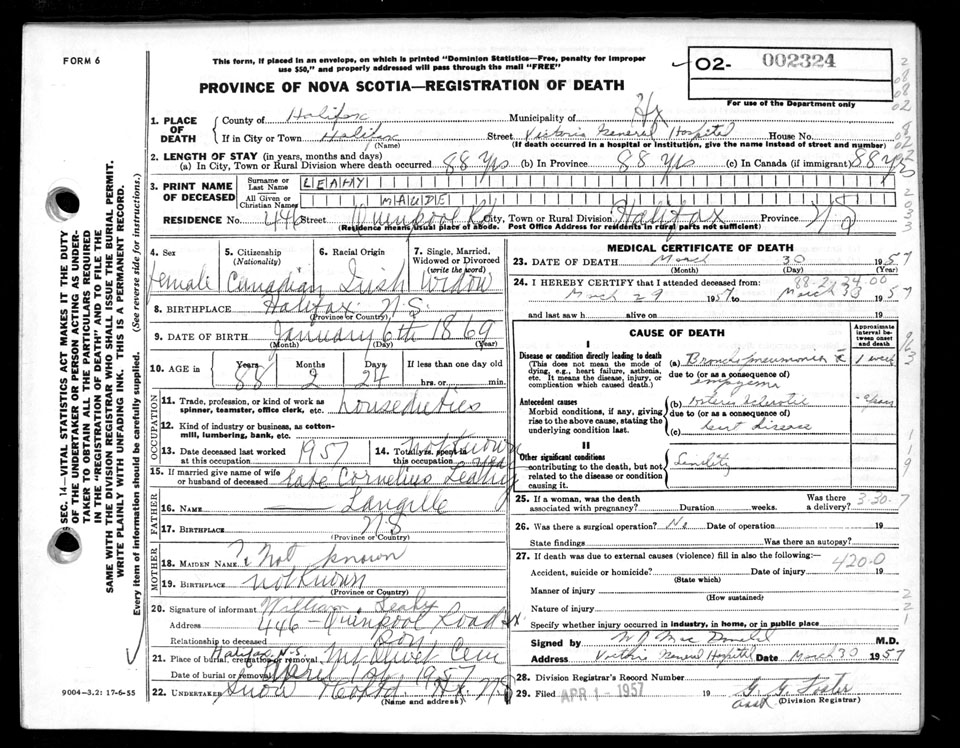 FORM 6
This form, if placed in an envelope, on which is printed "Dominion Statistics—Free, penalty for improper
use $50," and properly addressed will pass through the mail "FREE"
02- 002324
For use of the Department only
PROVINCE OF NOVA SCOTIA—REGISTRATION OF DEATH
1. PLACE OF DEATH County of Halifax Municipality of Hx
If in City or Town Halifax Street Victoria General Hospital House No.
(Name) (If death occurred in a hospital or institution, give the name instead of street and number)
2. LENGTH OF STAY (in years, months and days)
(a) In City, Town or Rural Division where death occurred 88 Yrs (b) In Province 88 Yrs (c) In Canada (if immigrant) 88 Yrs
3. PRINT NAME OF DECEASED Surname or Last Name LEAHY
All Given or Christian Names MAUDE
RESIDENCE No. 446 Street Quinpool Rd City, Town or Rural Division Halifax Province NS
(Residence means usual place of abode. Post Office Address for residents in rural parts not sufficient)
4. Sex 5. Citizenship (Nationality) 6. Racial Origin 7. Single, Married, Widowed or Divorced (write the word)
female Canadian Irish Widow
8. BIRTHPLACE Halifax N.S.
(Province or Country)
9. DATE OF BIRTH January 6th 1869
(Month) (Day) (Year)
10. AGE in Years Months Days If less than one day old
88 2 24 hrs. or min.
OCCUPATION
11. Trade, profession, or kind of work as spinner, teamster, office clerk, etc. houseduties
12. Kind of industry or business, as cotton-mill, lumbering, bank, etc.
13. Date deceased last worked at this occupation 1957 14. Total yrs. spent in this occupation not known
15. If married give name of wife or husband of deceased Late Cornelius Leahy
FATHER
16. NAME — Langille
17. BIRTHPLACE NS
(Province or Country)
MOTHER
18. MAIDEN NAME ? Not known
19. BIRTHPLACE not known
(Province or Country)
20. Signature of informant William Leahy
Address 446 - Quinpool Road Hx.
Relationship to deceased Son
21. Place of burial, cremation or removal Halifax N.S. Mt Olivet Cem
Date of burial or removal April 1957
22. UNDERTAKER Snow Hx. N.S.
(Name and address)
9004-3.2: 17-6-55
SEC. 14—VITAL STATISTICS ACT MAKES IT THE DUTY
OF THE UNDERTAKER OR PERSON ACTING AS UNDER-
TAKER TO OBTAIN ALL THE PARTICULARS REQUIRED
IN THE "REGISTRATION OF DEATH" AND TO FILE THE
SAME WITH THE DIVISION REGISTRAR WHO SHALL ISSUE THE BURIAL PERMIT.
WRITE PLAINLY WITH UNFADING INK. THIS IS A PERMANENT RECORD.
Every item of information should be carefully supplied. (See reverse side for instructions.)
MEDICAL CERTIFICATE OF DEATH
23. DATE OF DEATH March 30 1957
(Month) (Day) (Year)
88-2-24-00
24. I HEREBY CERTIFY that I attended deceased from:
March 29 1957 to March 30 1957
and last saw h alive on 19
CAUSE OF DEATH
Approximate interval between onset and death
I
Disease or condition directly leading to death (a) Bronchopneumonia 1 week
(This does not mean the mode of dying, e.g., heart failure, asthenia, etc. It means the disease, injury, or complication which caused death.)
due to (or as a consequence of)
empyema
Antecedent causes (b) Arterio sclerotic
Morbid conditions, if any, giving rise to the above cause, stating the underlying condition last.
due to (or as a consequence of)
(c) heart disease
II
Other significant conditions Senility
contributing to the death, but not related to the disease or condition causing it.
25. If a woman, was the death associated with pregnancy? Duration weeks. Was there a delivery? 3-30-7
26. Was there a surgical operation? No Date of operation 19
State findings Was there an autopsy?
27. If death was due to external causes (violence) fill in also the following:
420-0
Accident, suicide or homicide? Date of injury 19
(State which)
Manner of injury
(How sustained)
Nature of injury
Specify whether injury occurred in industry, in home, or in public place
Signed by W J MacDonald M.D.
Address Victoria General Hospital Date March 30 1957
28. Division Registrar's Record Number
29. Filed APR 1 - 1957 19 G. G. Foster
asst (Division Registrar)